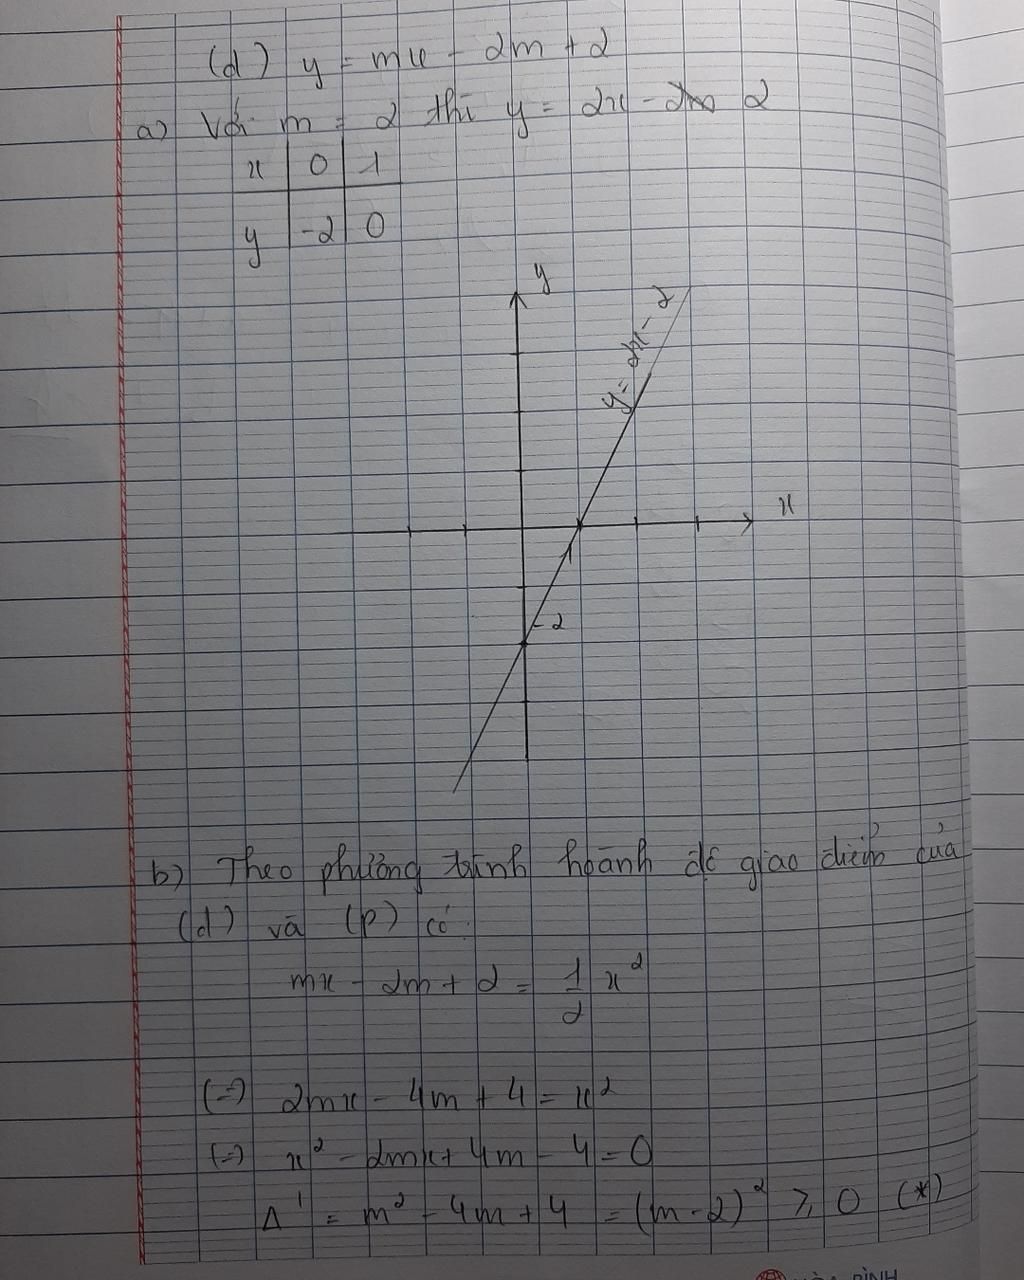 (d) y = mx - 2m + 2
a) Với m = 2 thì y = 2x - 2
x 0 1
y -2 0
y
y = 2x - 2
x
1
-2
b) Theo phương trình hoành độ giao điểm của
(d) và (p) có:
mx - 2m + 2 = 1/2 x²
(=) 2mx - 4m + 4 = x²
(=) x² - 2mx + 4m - 4 = 0
Δ' = m² - 4m + 4 = (m-2)² ≥ 0 (*)